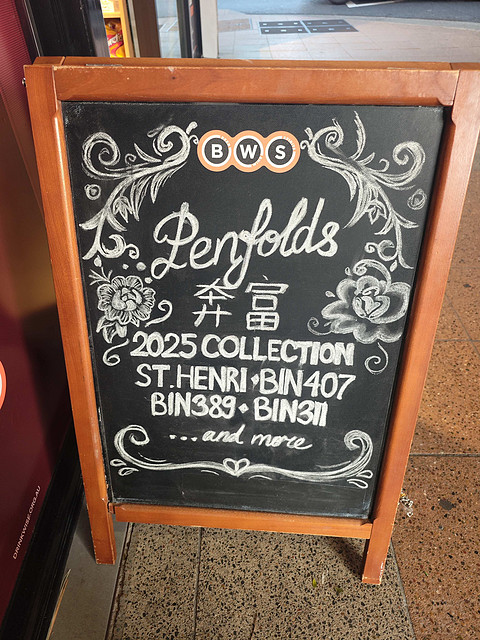 BWS
Penfolds
奔富
2025 COLLECTION
ST. HENRI • BIN 407
BIN 389 • BIN 311
...and more
DRINKWISE.ORG.AU